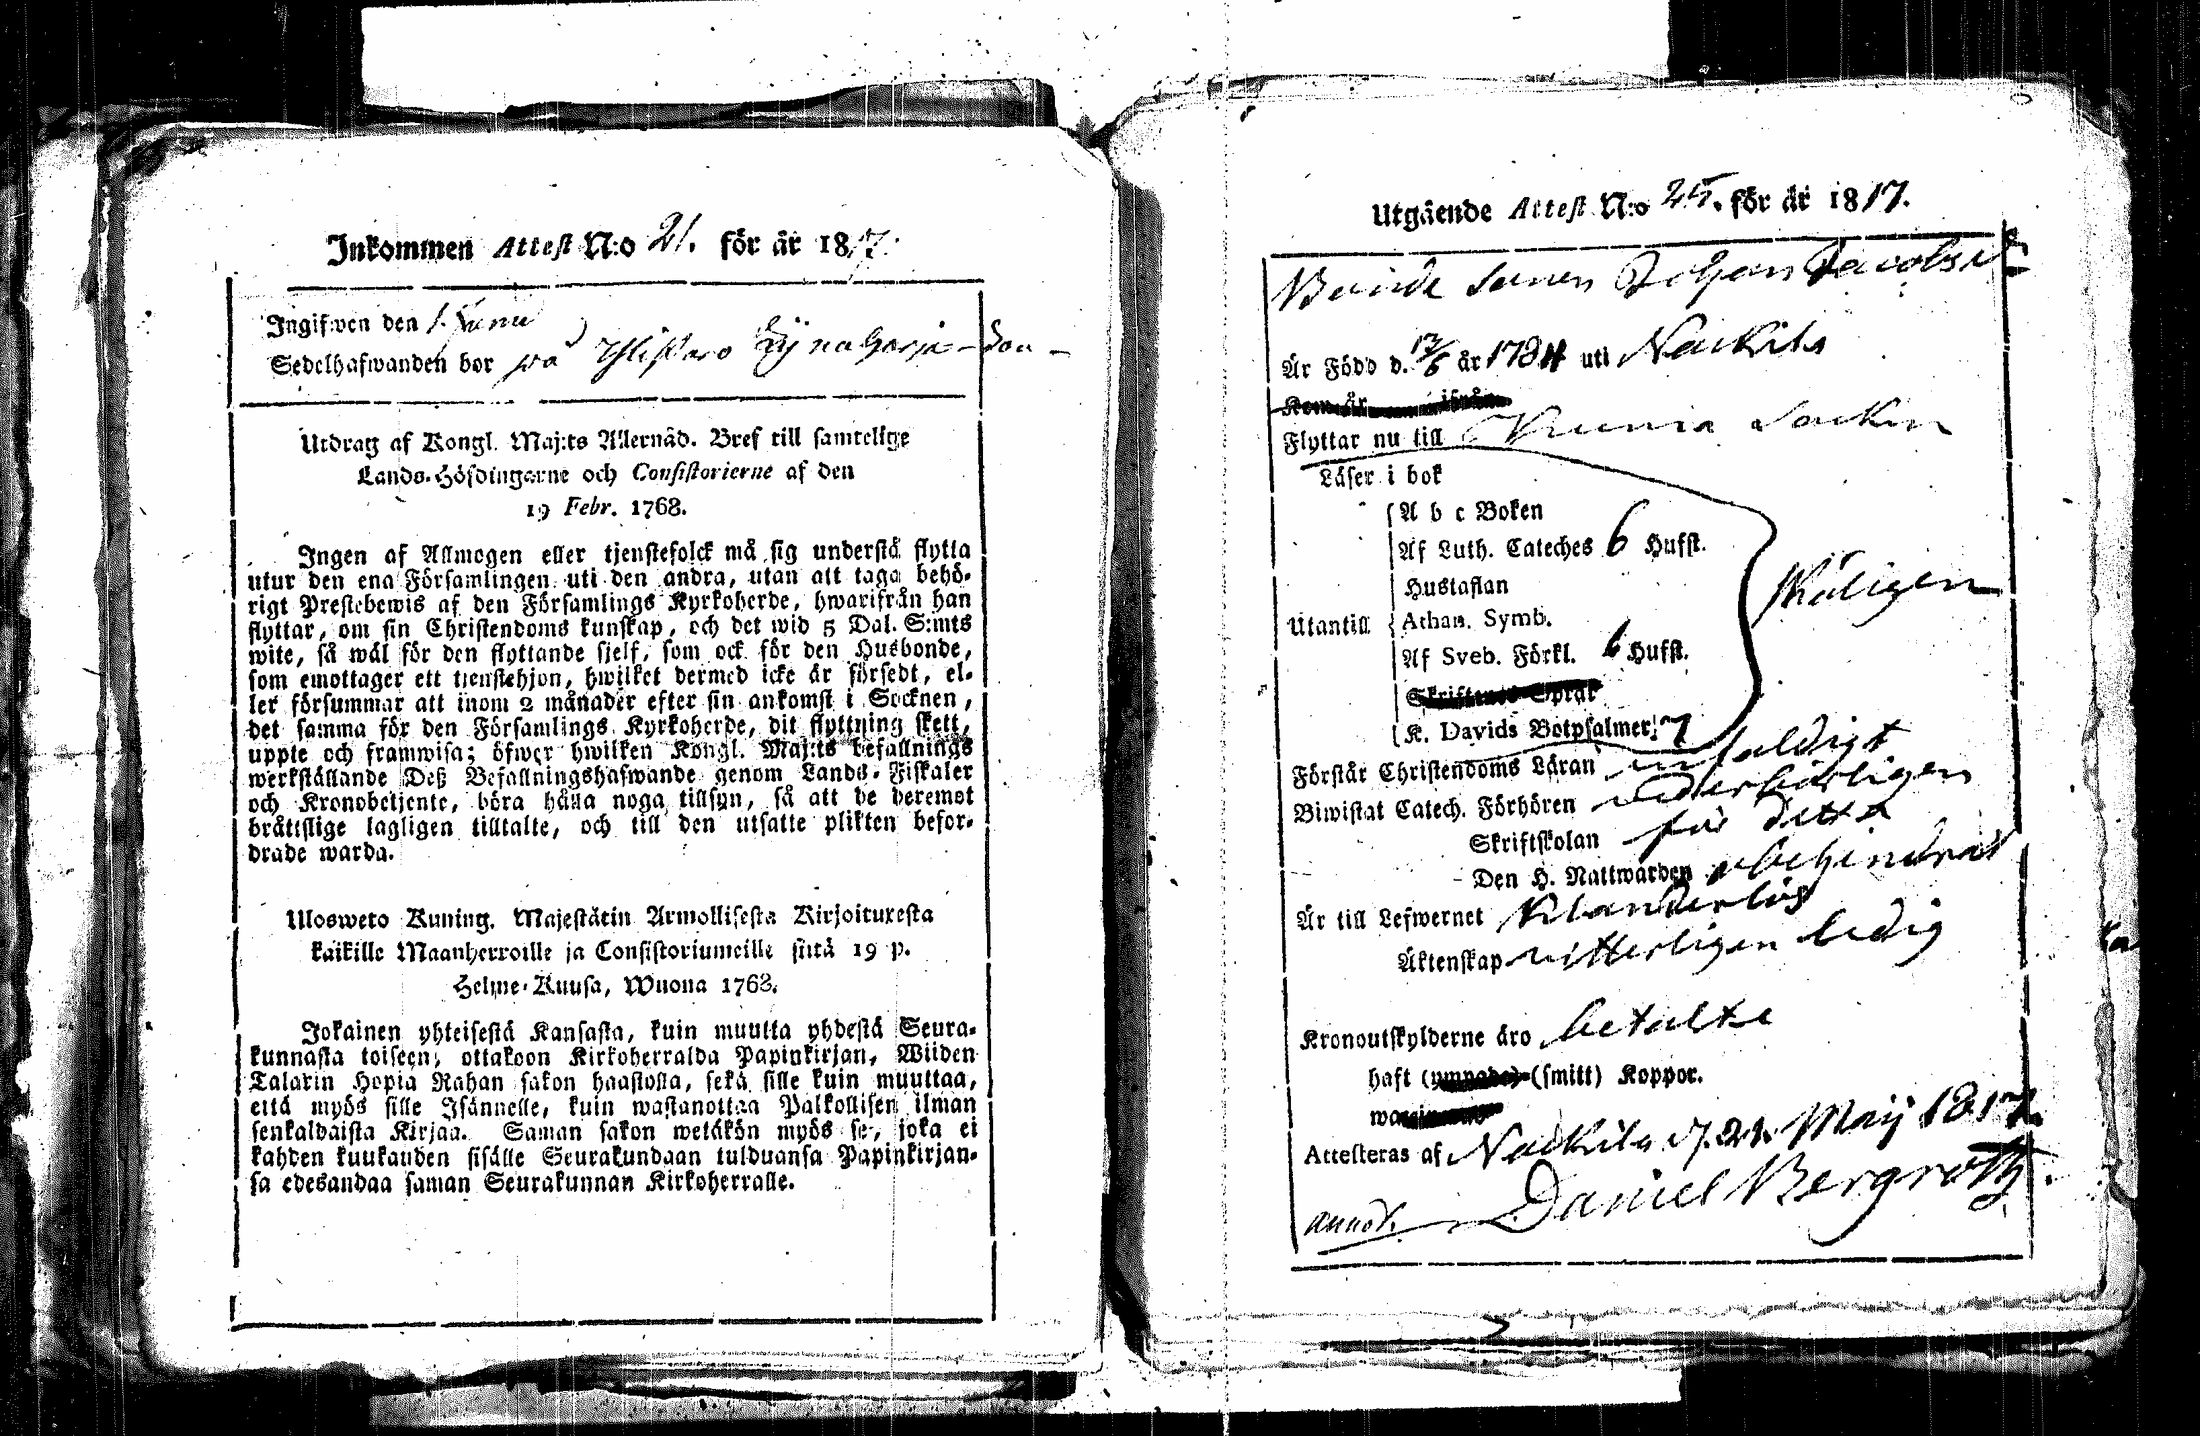 Inkommen Attest N:o 21. för år 1817.
Ingifwen den 1. Junii
Sedelhafwanden bor på
Utdrag af Kongl. Maj:ts Allernåd. Bref till samtelige
Lands-Höfdingarne och Consistorierne af den
19 Febr. 1768.
Ingen af Allmogen eller tjenstefolck må sig understå flytta
utur den ena Församlingen uti den andra, utan att taga behö-
rigt Prestebewis af den Församlings Kyrkoherde, hwarifrån han
flyttar, om sin Christendoms kunskap, och det wid 5 Dal. S:mts
wite, så wäl för den flyttande sjelf, som ock för den Husbonde,
som emottager ett tjenstehjon, hwilket dermed icke är försedt, el-
ler försummar att inom 2 månader efter sin ankomst i Socknen,
det samma för den Församlings Kyrkoherde, dit flyttning skett,
uppte och framwisa; öfwer hwilken Kongl. Maj:ts befallnings
werkställande Deß Befallningshafwande genom Lands-Fiskaler
och Kronobetjente, böra hålla noga tillsyn, så att de deremot
bråttslige lagligen tilltalte, och till den utsatte plikten befor-
drade warda.
Ulosweto Kuning. Majestätin Armollisesta Kirjoituxesta
kaikille Maanherroille ja Consistoriumeille siitä 19 p.
Helme-Kuusa, Wuona 1768.
Jokainen yhteisestä Kansasta, kuin muutta yhdestä Seura-
kunnasta toiseen, ottakoon Kirkoherralda Papinkirjan, Wiiden
Talarin Hopia Rahan sakon haastolla, sekä sille kuin muuttaa,
että myös sille Isännelle, kuin wastanottaa Palkollisen ilman
senkaldaista Kirjaa. Saman sakon wetäkön myös se, joka ei
kahden kuukauden sisälle Seurakundaan tulduansa Papinkirjan-
sa edesandaa saman Seurakunnan Kirkoherralle.
Utgående Attest N:o 25. för år 1817.
Bonde sonen Johan Jacobss
Är Född d. 12/6 år 1784 uti Nackila
Flyttar nu till Socken
Läser i bok
A b c Boken
Af Luth. Cateches 6 Hufst.
Hustaflan
Skäligen
Utantill Athan. Symb.
Af Sveb. Förkl. 6 Hufst.
K. Davids Botpsalmer, 7
Förstår Christendoms Läran enfaldigt
Biwistat Catech. Förhören wederbörligen
Skriftskolan för detta
Den H. Nattwarden obehindrad
Är till Lefwernet Klanderlös
Äktenskap witterligen ledig
Kronoutskylderne äro betalte
haft (smitt) Koppor.
Attesteras af Nackila d. 21. Maij 1817.
Daniel Bergroth